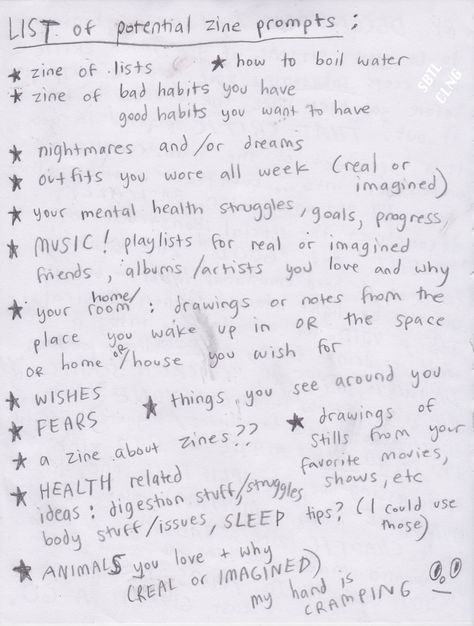 LIST of potential zine prompts:
★ zine of lists ★ how to boil water
★ zine of bad habits you have
good habits you want to have
SBTL
CLNG
★ nightmares and/or dreams
★ outfits you wore all week (real or
imagined)
★ your mental health struggles, goals, progress
★ MUSIC! playlists for real or imagined
friends, albums/artists you love and why
★ your home/room: drawings or notes from the
place you wake up in OR the space
OR home or/house you wish for
★ WISHES
★ things you see around you
★ FEARS
★ a zine about zines??
★ drawings of
stills from your
favorite movies,
shows, etc
★ HEALTH related
ideas: digestion stuff/struggles
body stuff/issues, SLEEP tips? (I could use
those)
★ ANIMALS you love + why
(REAL or IMAGINED)
my hand is
CRAMPING